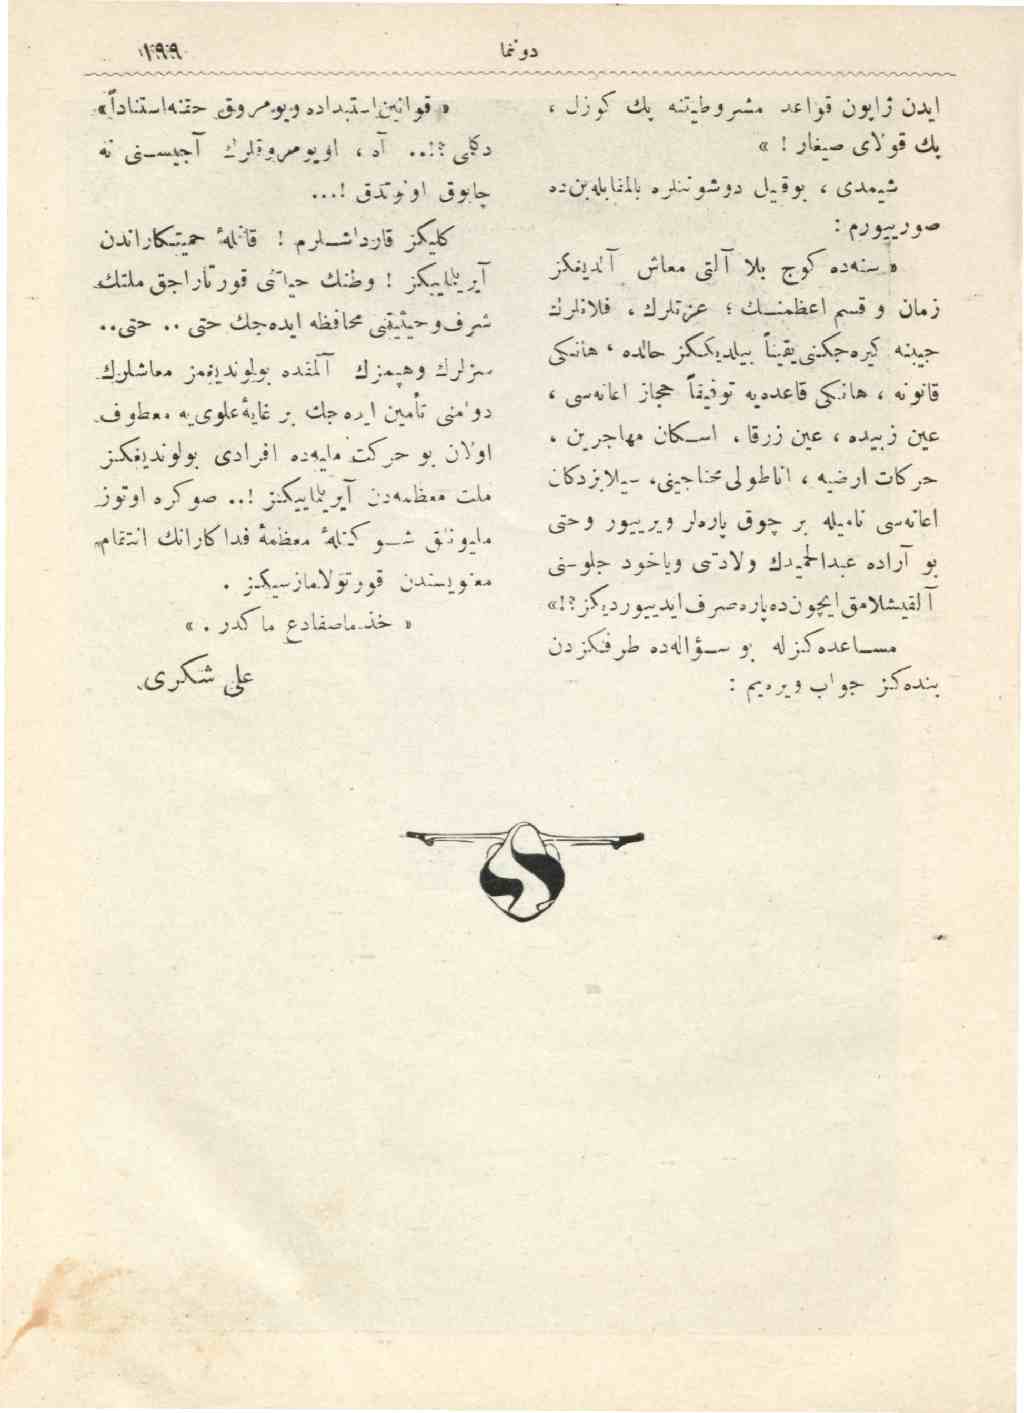 دونما
١٩٩
ايدن ژاپون قواعد مشروطيتنه پك كوزل ،
پك قولاى صيغار ! »
شيمدى ، بوقبيل دوشوننلره بالمقابله بن ده
صورييورم :
« سنه ده كوج بلا آلتى معاش آلديغكز
زمان و قسم اعظمنــك ؛ عزتلرك ، فلانلرك
جيبنه كيره جكنى يقيناً بيلديككز حالده ، هانكى
قانونه ، هانكى قاعده يه توفيقاً حجاز اعانه سى ،
عين زبيده ، عين زرقا ، اسكان مهاجرين ،
حركات ارضيه ، اناطولى محتاجينى ، سيلابزدكان
اعانه سى ناميله بر چوق پاره لر ويرييور وحتى
بو آراده عبدالحميدك ولادتى وياخود جلوسنى
آلقيشلامق ايچون ده پاره صرف ايدييورديكز ؟! »
مســاعده كزله بو ســؤاله ده طرفكزدن
بنده كز جواب ويره يم :
« قوانين استبداده ويومروق حقنه استناداً »
دكلمى ؟!.. آه ، اويومروقلرك آجيســنى نه
چابوق اونوتدق !...
كليكز قارداشــلرم ! قافلهٔ حميتكاراندن
آيريلمايكز ! وطنك حياتنى قورتاراجق ملتك
شرف وحيثيتنى محافظه ايده جك حتى .. حتى..
سزلرك وهپمزك آلمقده بولونديغمز معاشلرك
دوامنى تأمين ايده جك بر غايهٔ علوى يه معطوف
اولان بو حركت مليه ده افرادى بولونديغكز
ملت معظمه دن آيريلمايكز !.. صوكره اوتوز
مليونلق شــو كتلهٔ معظمهٔ فداكارانك انتقام
معنويسندن قورتولامازسيكز .
« خذ ماصفا دع ما كدر . »
على شكرى